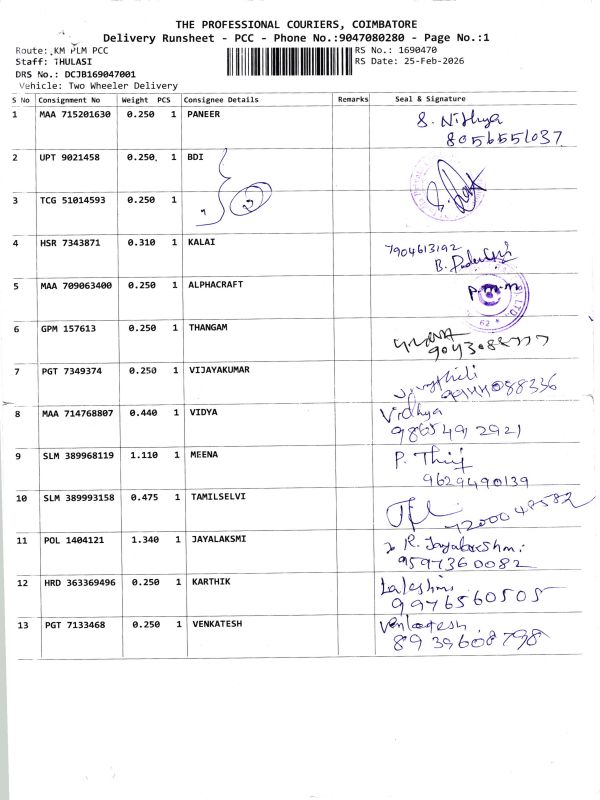 THE PROFESSIONAL COURIERS, COIMBATORE
Delivery Runsheet - PCC - Phone No.:9047080280 - Page No.:1
Route: KM PLM PCC
RS No.: 1690470
Staff: THULASI
RS Date: 25-Feb-2026
DRS No.: DCJB169047001
Vehicle: Two Wheeler Delivery
S No Consignment No Weight PCS Consignee Details Remarks Seal & Signature
1 MAA 715201630 0.250 1 PANEER S. Nithya
8056551037
2 UPT 9021458 0.250 1 BDI
3 TCG 51014593 0.250 1
4 HSR 7343871 0.310 1 KALAI 7904613192
B.
5 MAA 709063400 0.250 1 ALPHACRAFT
6 GPM 157613 0.250 1 THANGAM
7 PGT 7349374 0.250 1 VIJAYAKUMAR
9944088336
8 MAA 714768807 0.440 1 VIDYA Vidhya
9865491 2921
9 SLM 389968119 1.110 1 MEENA P.
9629490139
10 SLM 389993158 0.475 1 TAMILSELVI
7200048582
11 POL 1404121 1.340 1 JAYALAKSMI R. Jayalakshmi
9597360082
12 HRD 363369496 0.250 1 KARTHIK Lakshmi
9976560505
13 PGT 7133468 0.250 1 VENKATESH Venkatesh
8939608798